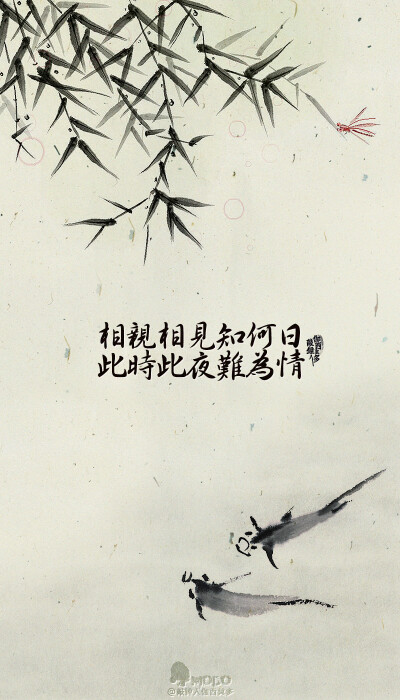 相親相見知何日
此時此夜難為情
MOBO